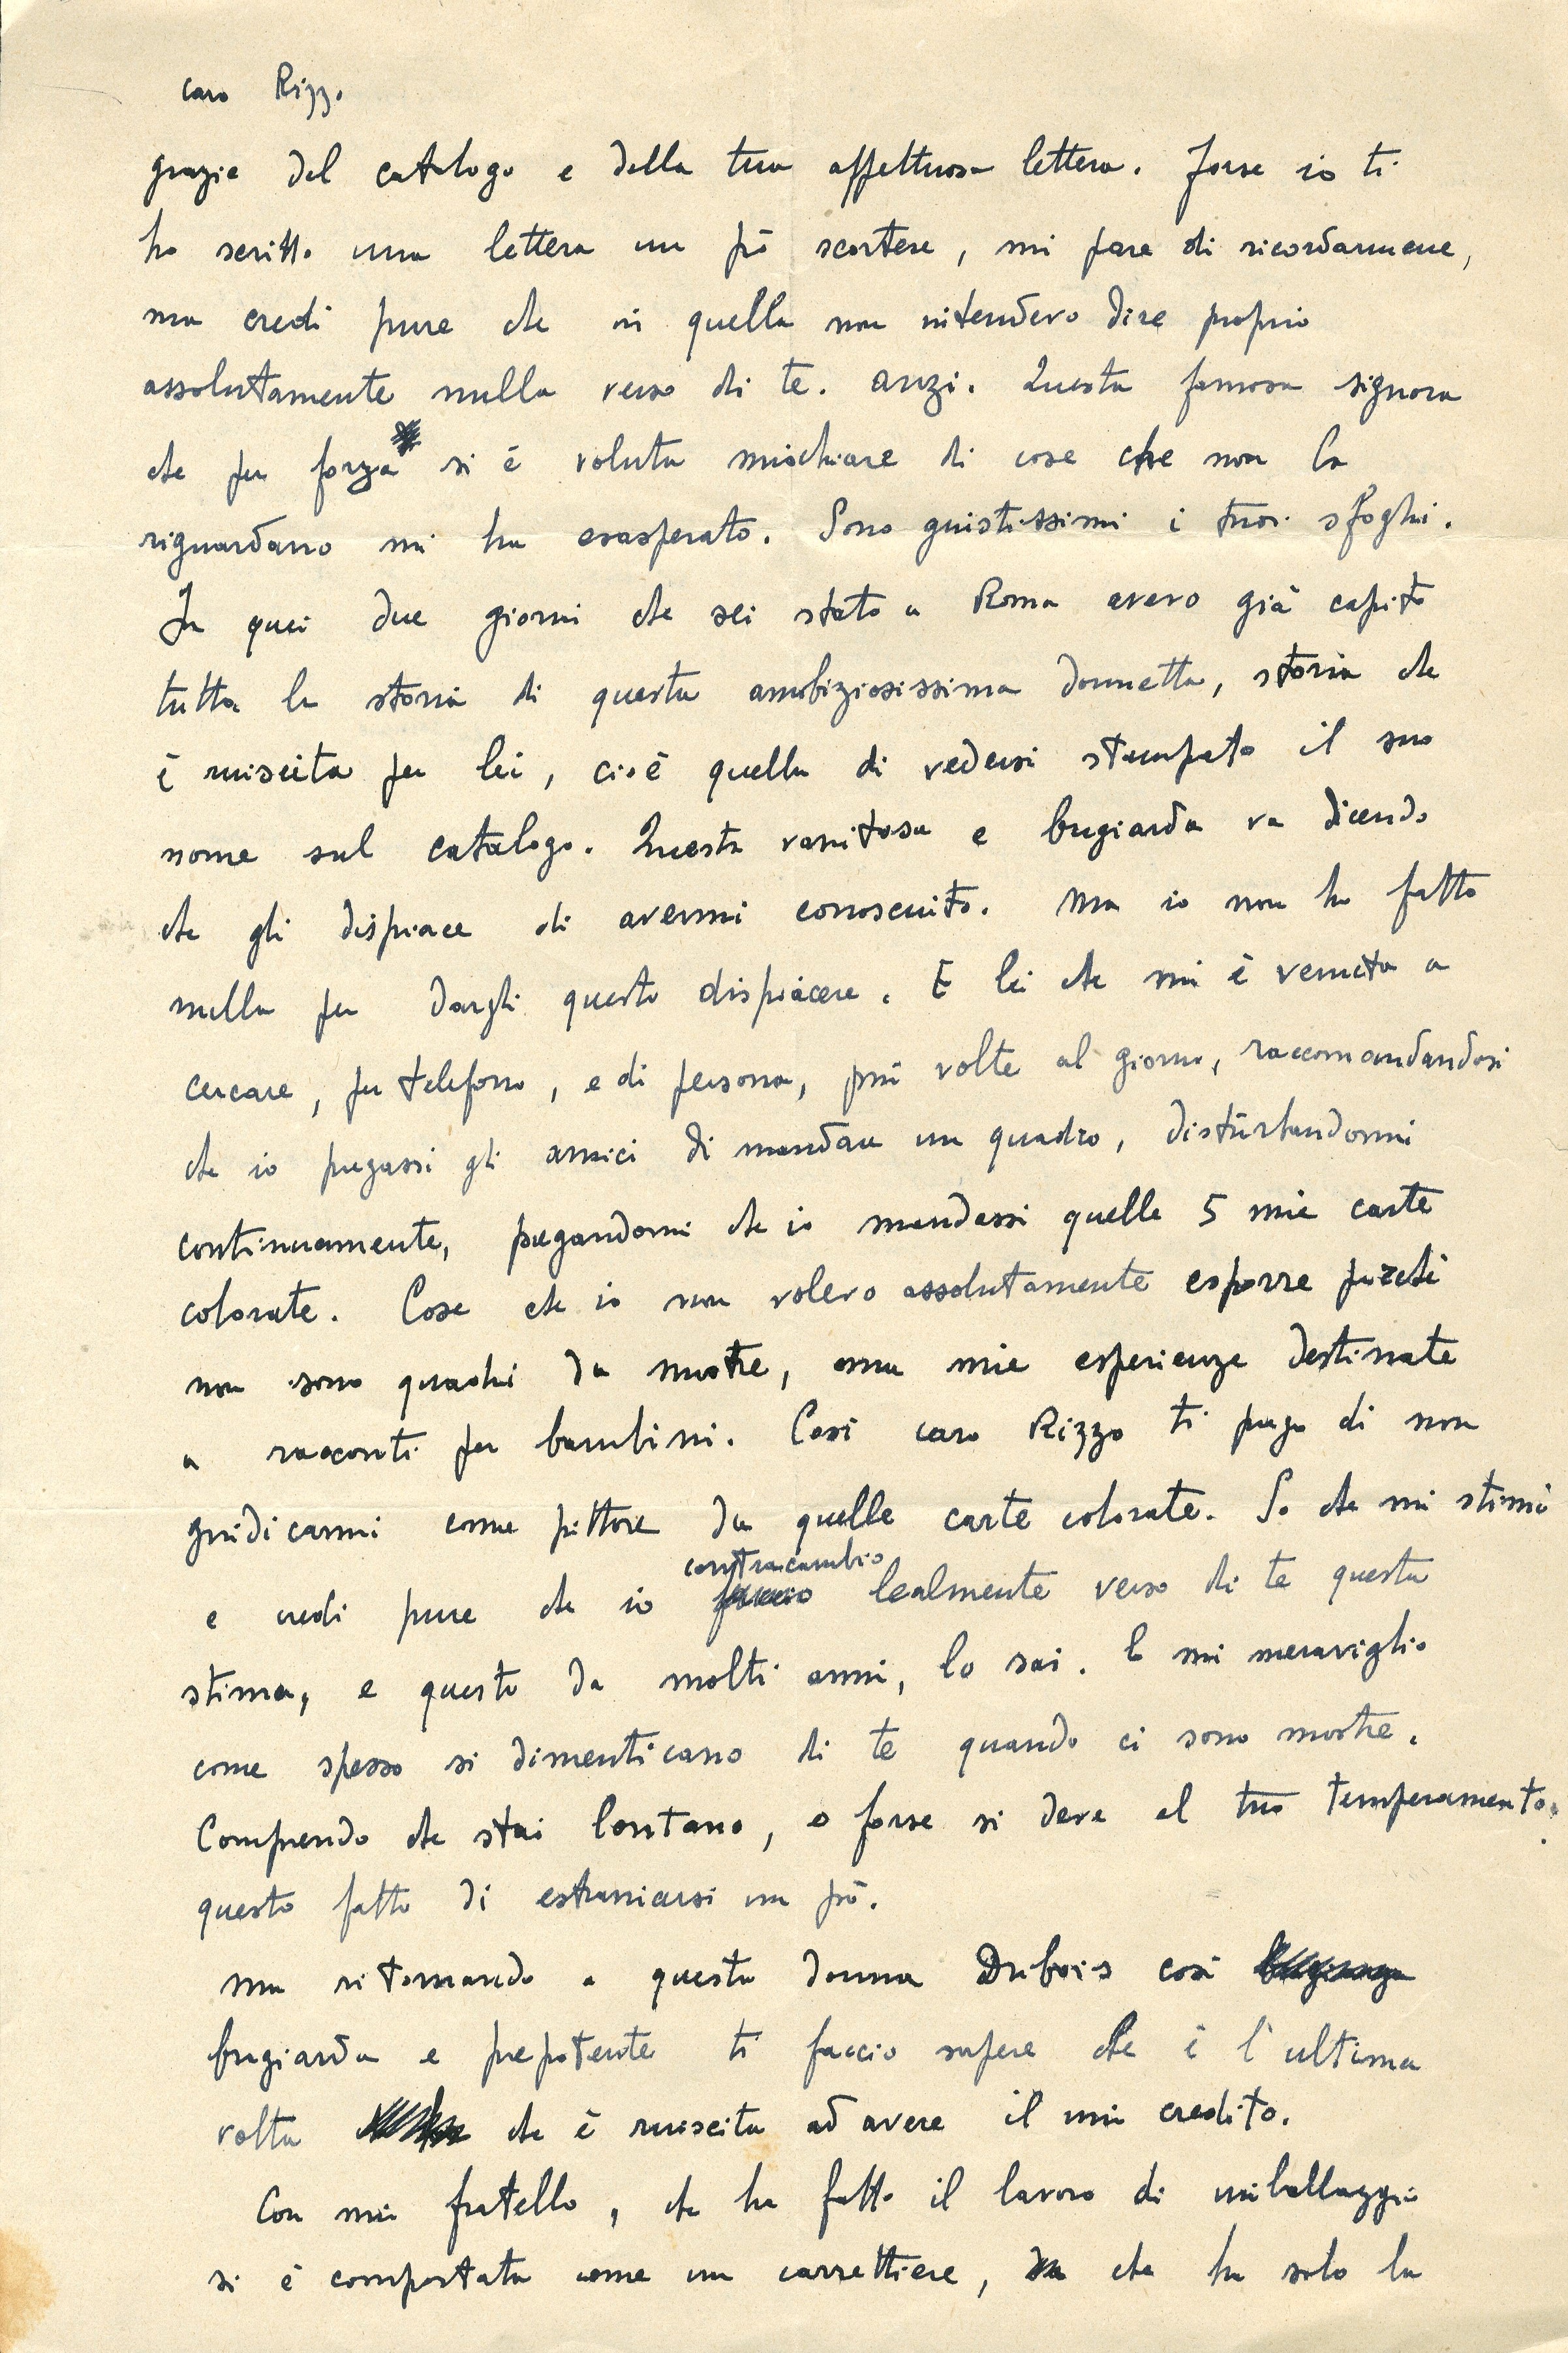 caro Rizzo
grazie del catalogo e della tua affettuosa lettera. Forse io ti
ho scritto una lettera un pò scortese, mi pare di ricordarmene,
ma credi pure che in quella non intendevo dire proprio
assolutamente nulla verso di te. anzi. Questa famosa signora
che per forza si è voluta mischiare di cose che non la
riguardano mi ha esasperato. Sono giustissimi i tuoi sfoghi.
In quei due giorni che sei stato a Roma avevo già capito
tutta la storia di questa ambiziosissima donnetta, storia che
è riuscita per lei, cioè quella di vedersi stampato il suo
nome sul catalogo. Questa vanitosa e bugiarda va dicendo
che gli dispiace di avermi conosciuto. Ma io non ho fatto
nulla per dargli questo dispiacere. E lei che mi è venuta a
cercare, per telefono, e di persona, più volte al giorno, raccomandandosi
che io pregassi gli amici di mandare un quadro, disturbandomi
continuamente, pregandomi che io mandassi quelle 5 mie carte
colorate. Cose che io non volevo assolutamente esporre perchè
non sono quadri da mostre, ma mie esperienze destinate
a racconti per bambini. Così caro Rizzo ti prego di non
giudicarmi come pittore da quelle carte colorate. So che mi stimi
e credi pure che io contracambio lealmente verso di te questa
stima, e questo da molti anni, lo sai. E mi meraviglio
come spesso si dimenticano di te quando ci sono mostre.
Comprendo che stai lontano, o forse si deve al tuo temperamento
questo fatto di estraniarsi un pò.
ma ritornando a questa donna Dubois così
bugiarda e prepotente ti faccio sapere che è l'ultima
volta che è riuscita ad avere il mio credito.
Con mio fratello, che ha fatto il lavoro di imballaggio
si è comportata come un carrettiere, che ha solo la